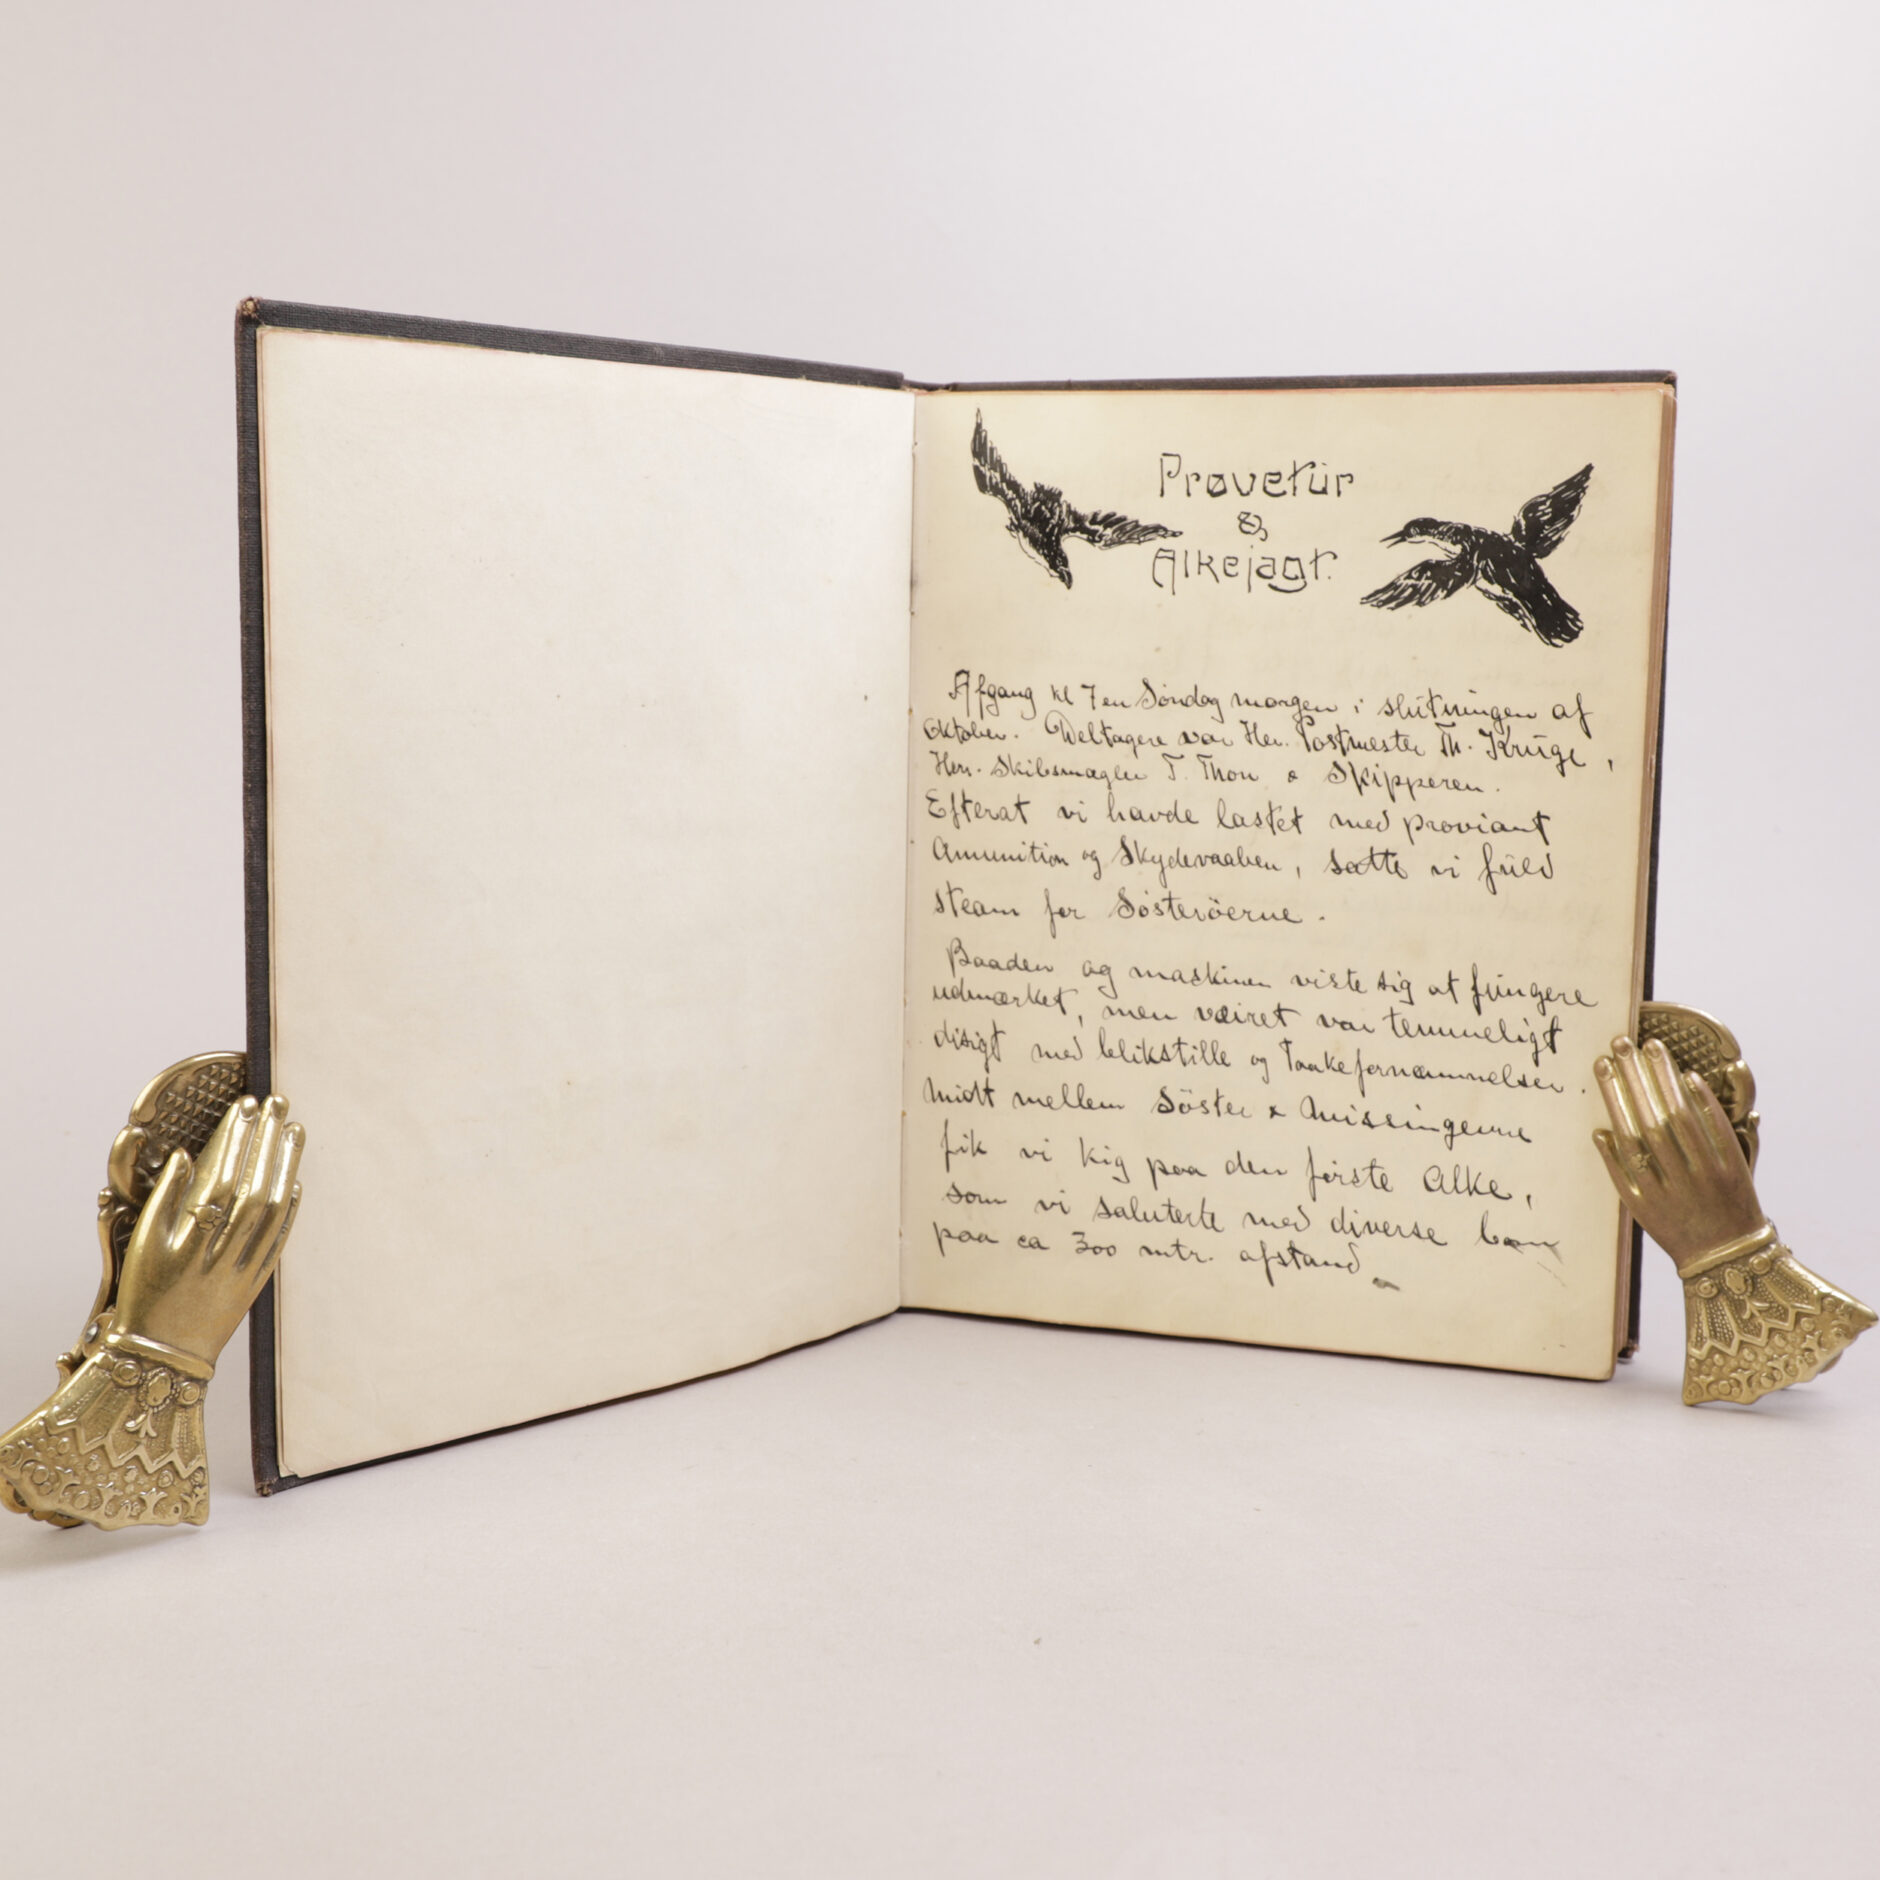 Prøvetür
&
Alkejagt.
Afgang kl 7 en Søndag morgen i slütningen af
Oktober. Deltagere var Her. Postmester Th. Krüge,
Herr. Skibsmægler T. Thon & Skipperen.
Efterat vi havde lastet med proviant
Amunition og Skydevaaben, satte vi füld
steam for Søsterøerne.
Baaden og maskinen viste sig at füngere
udmærket, men væiret var temmeligt
disigt med blikstille og Taakefornæmmelser.
Midt mellem Søster & Missingerne
fik vi kig paa den første Alke,
som vi saluterte med diverse
paa ca 300 mtr. afstand